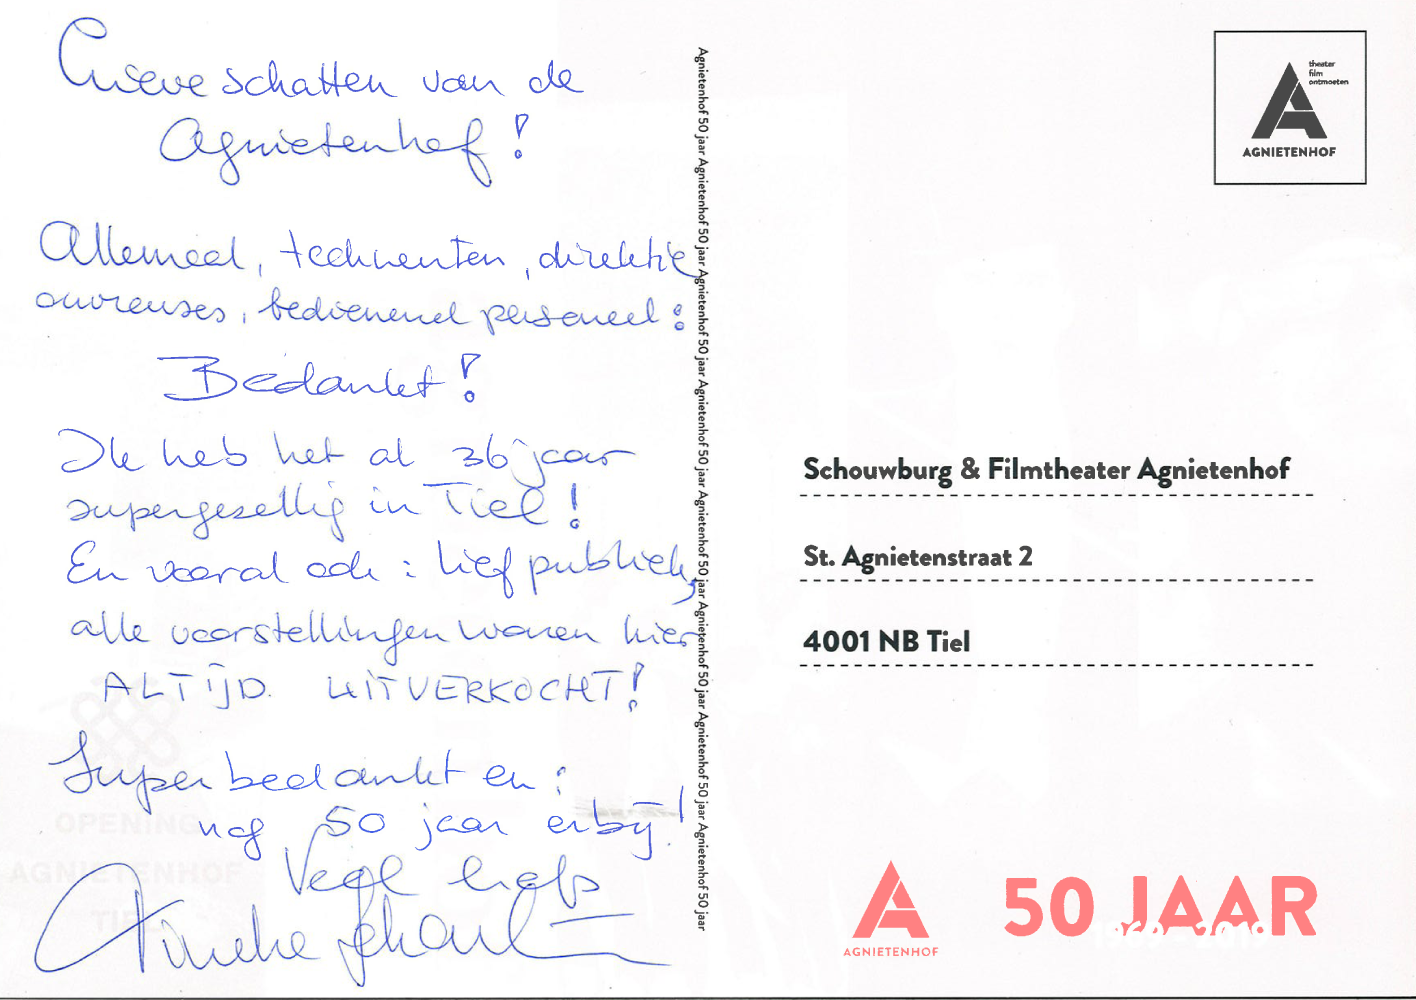 Lieve schatten van de
Agnietenhof!
Allemaal, technenten, direktie
ouvreuses, bedienend personeel:
Bedankt!
Ik heb het al 36 jaar
supergezellig in Tiel!
En vooral ook: lief publiek,
alle voorstellingen waren hier
ALTIJD UITVERKOCHT!
Super bedankt en:
nog 50 jaar erbij!
Veel liefs
Tineke Schouten
Agnietenhof 50 jaar Agnietenhof 50 jaar Agnietenhof 50 jaar Agnietenhof 50 jaar Agnietenhof 50 jaar Agnietenhof 50 jaar Agnietenhof 50 jaar Agnietenhof 50 jaar Agnietenhof 50 jaar Agnietenhof 50 jaar
theater
film
ontmoeten
AGNIETENHOF
Schouwburg & Filmtheater Agnietenhof
St. Agnietenstraat 2
4001 NB Tiel
AGNIETENHOF
50 JAAR
1969-2019
OPENING
AGNIETENHOF
TIEL